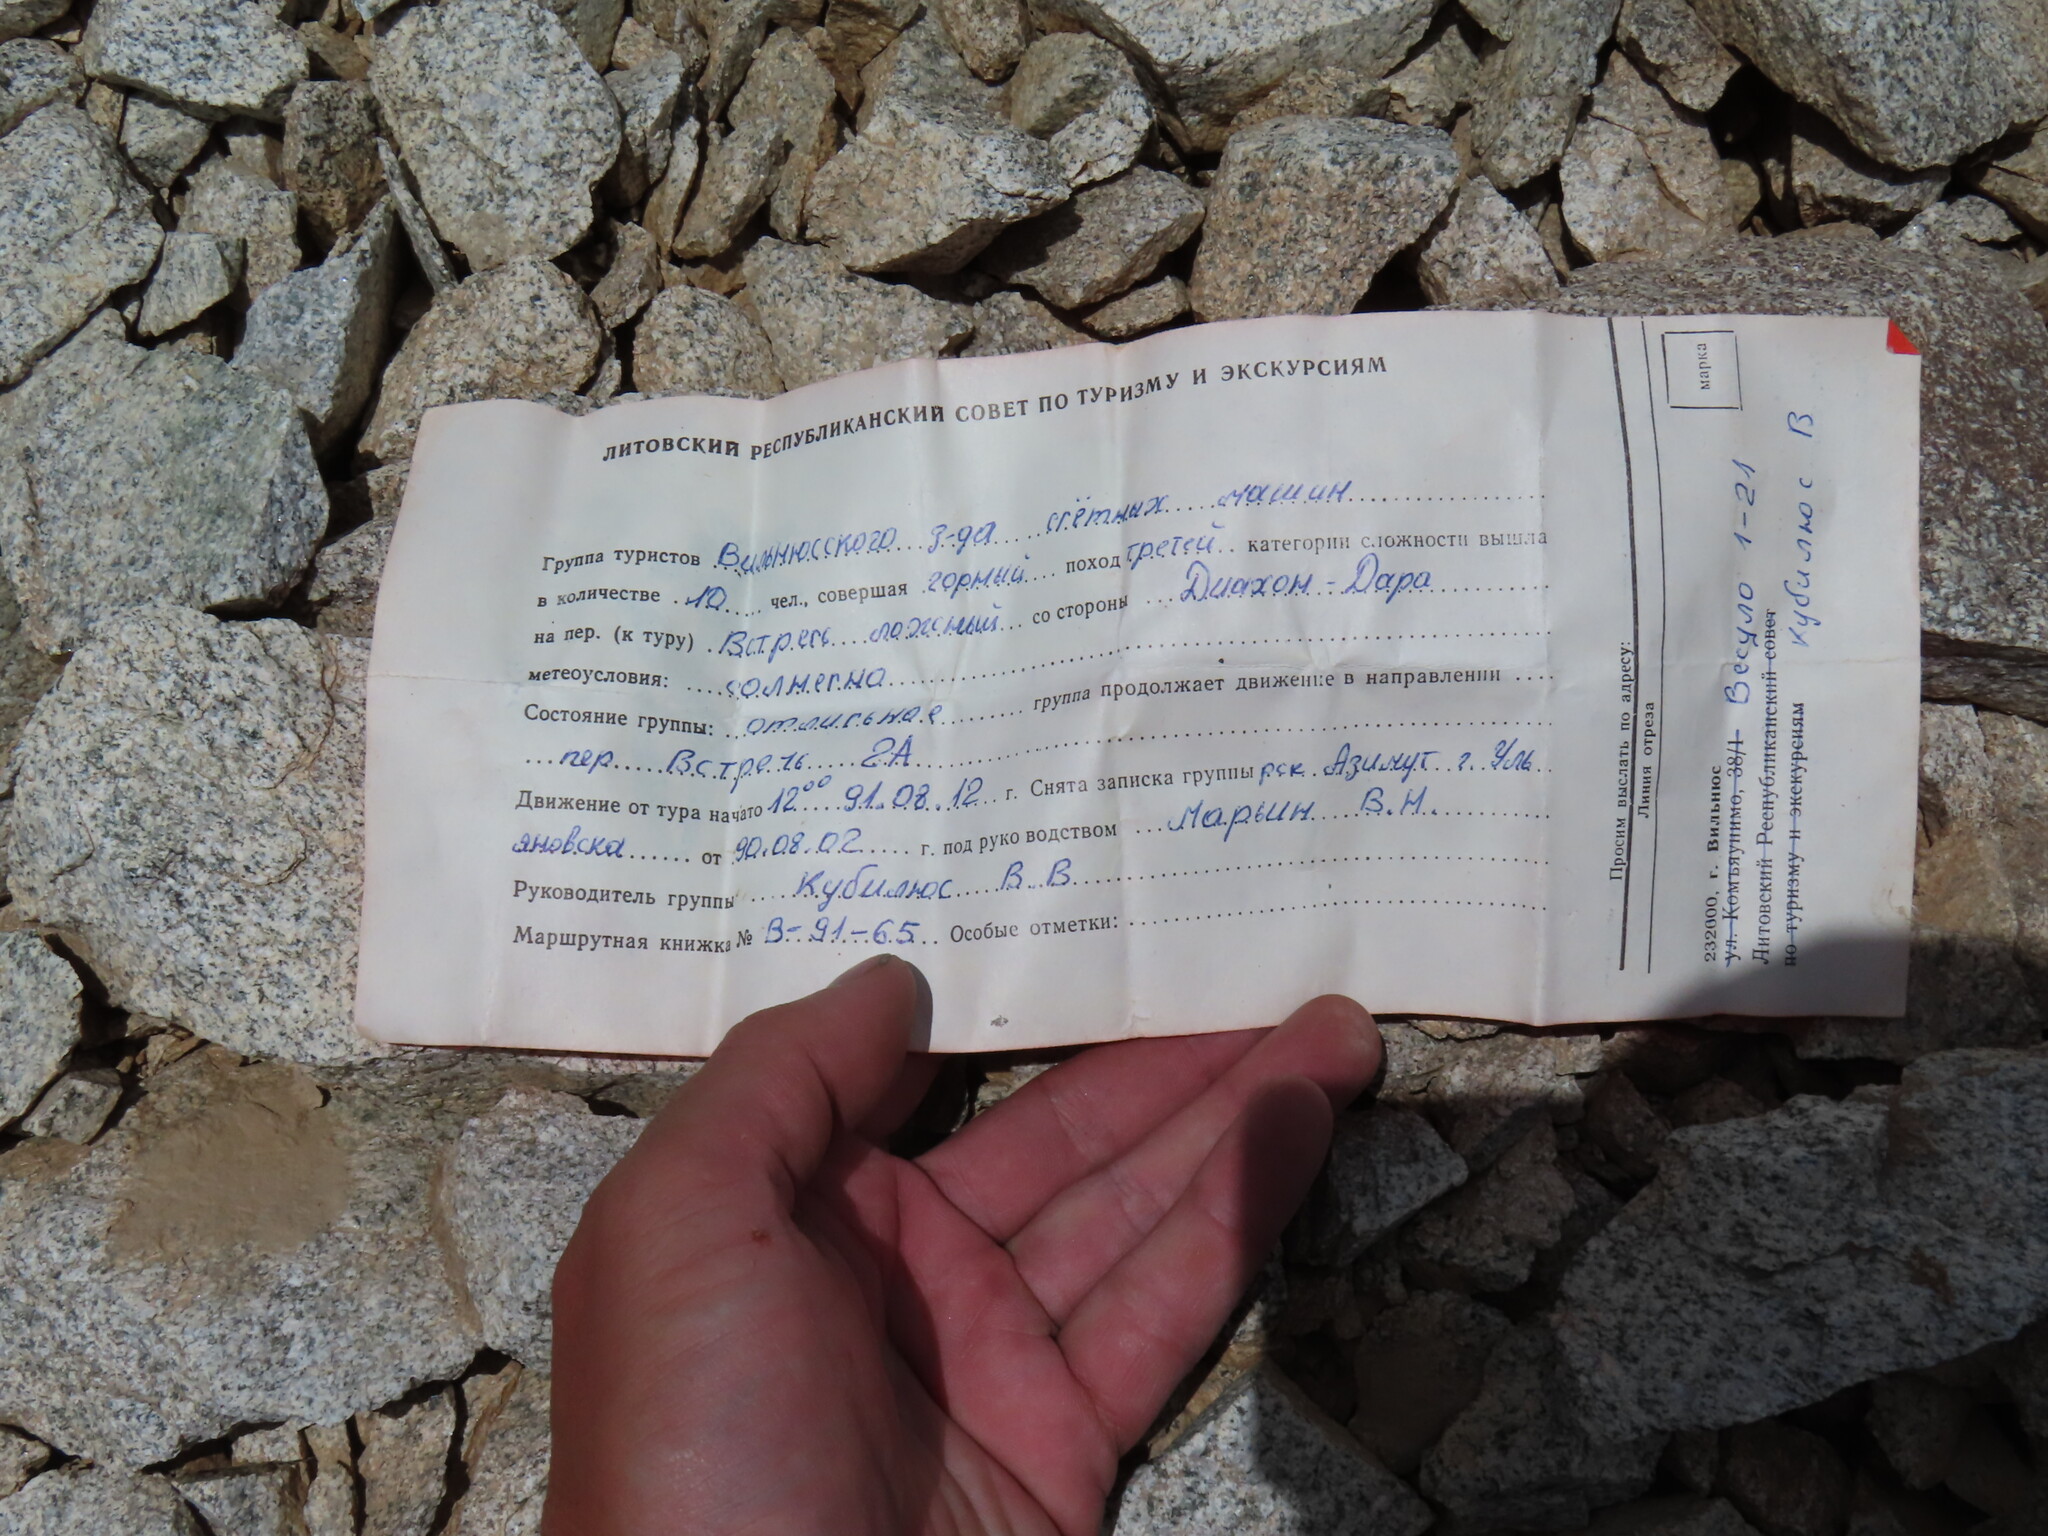 ЛИТОВСКИЙ РЕСПУБЛИКАНСКИЙ СОВЕТ ПО ТУРИЗМУ И ЭКСКУРСИЯМ
Группа туристов Вильнюсского з-да счётных машин
в количестве 10 чел., совершая горный поход третей категории сложности вышла
на пер. (к туру) Встречь ложный со стороны Диахон-Дара
метеоусловия: солнечно
Состояние группы: отличьное группа продолжает движение в направлении
пер Встречь 2А
Движение от тура начато 12⁰⁰ 91.08.12 г. Снята записка группы рск Азимут г. Уль
яновска от 90.08.02 г. под руководством Марьин В.Н.
Руководитель группы Кубилюс В.В
Маршрутная книжка № В-91-65 Особые отметки:
Просим выслать по адресу:
Линия отреза
марка
232600, г. Вильнюс
ул. Комъяунимо, 38/1 Весуло 1-21
Литовский Республиканский совет
по туризму и экскурсиям Кубилюс В